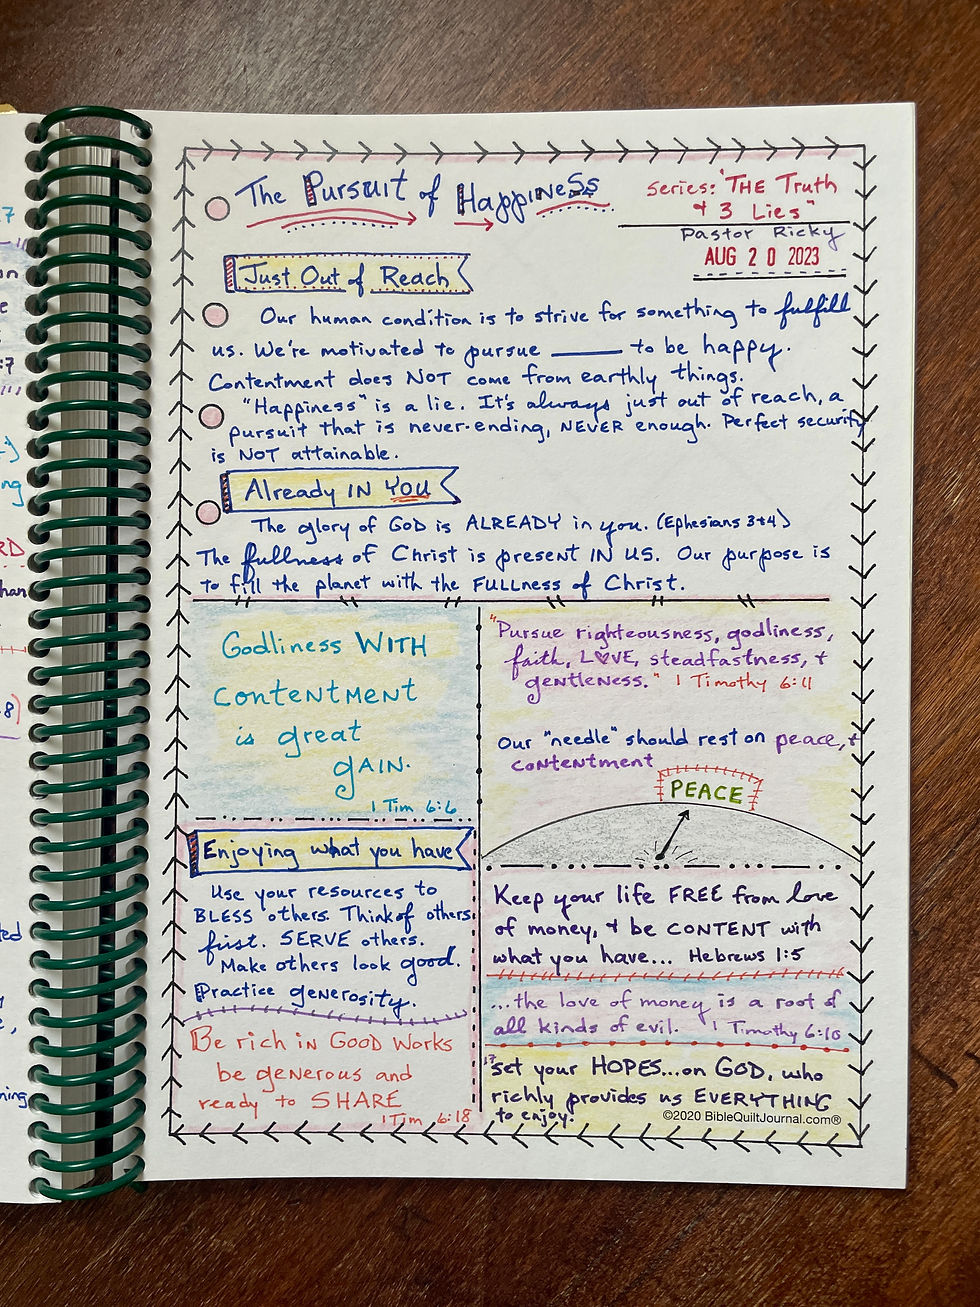 The Pursuit of Happiness
Series: "THE Truth
+ 3 Lies"
Pastor Ricky
AUG 20 2023
Just Out of Reach
Our human condition is to strive for something to fulfill
us. We're motivated to pursue _____ to be happy.
Contentment does NOT come from earthly things.
"Happiness" is a lie. It's always just out of reach, a
pursuit that is never-ending, NEVER enough. Perfect security
is NOT attainable.
Already IN YOU
The glory of GOD is ALREADY in you. (Ephesians 3+4)
The fullness of Christ is present IN US. Our purpose is
to fill the planet with the FULLNESS of Christ.
Godliness WITH
CONTENTMENT
is great
GAIN.
1 Tim 6:6
Enjoying what you have
Use your resources to
BLESS others. Think of others
first. SERVE others.
Make others look good.
Practice generosity.
Be rich in GOOD works
be generous and
ready to SHARE
1 Tim 6:18
"Pursue righteousness, godliness,
faith, LOVE, steadfastness, +
gentleness." 1 Timothy 6:11
Our "needle" should rest on peace, +
contentment
PEACE
Keep your life FREE from love
of money, + be CONTENT with
what you have... Hebrews 1:5
...the love of money is a root of
all kinds of evil. 1 Timothy 6:10
17 set your HOPES...on GOD, who
richly provides us EVERYTHING
to enjoy.
©2020 BibleQuiltJournal.com®
7
:7
RD
han
8)